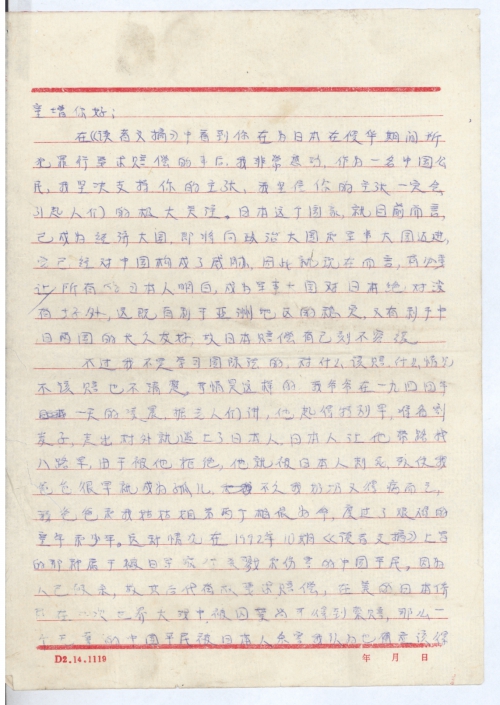 童增你好：
在《读者文摘》中看到你在为日本在侵华期间所
犯罪行要求赔偿的事后，我非常感动，作为一名中国公
民，我坚决支持你的主张，我坚信你的主张一定会
引起人们的极大关注。日本这个国家，就目前而言，
已成为经济大国，即将向政治大国和军事大国迈进，
它已经对中国构成了威胁，因此就现在而言，
让所有日本人明白，成为军事大国对日本绝对没
有好处，这既有利于亚洲地区的稳定，又有利于中
日两国的大众友好，故日本赔偿已刻不容缓
不过我不是学习国际法的，对什么该赔，什么情况
不该赔也不清楚。事情是这样的 我爷爷在一九四四年
一天的凌晨，据老人们讲，他起得特别早，准备到
走出村外就遇上了日本人，日本人让他带路找
八路军，由于被他拒绝，他就被日本人刺死，致使我
爸爸很早就成为孤儿，不久我奶奶又得病而亡，
我爸爸和我姑姑相依为命，度过了艰难的
童年和少年。这种情况在1992年10期《读者文摘》上写
的那种属于被日军杀戮和伤害的中国平民。因为
人已故亡，故其后代有权要求赔偿，在美的日本侨
民在二次世界大战中被囚禁尚可得到索赔，那么一
个无辜的中国平民被日本人杀害我认为也应该得
D2.14.1119 年 月 日